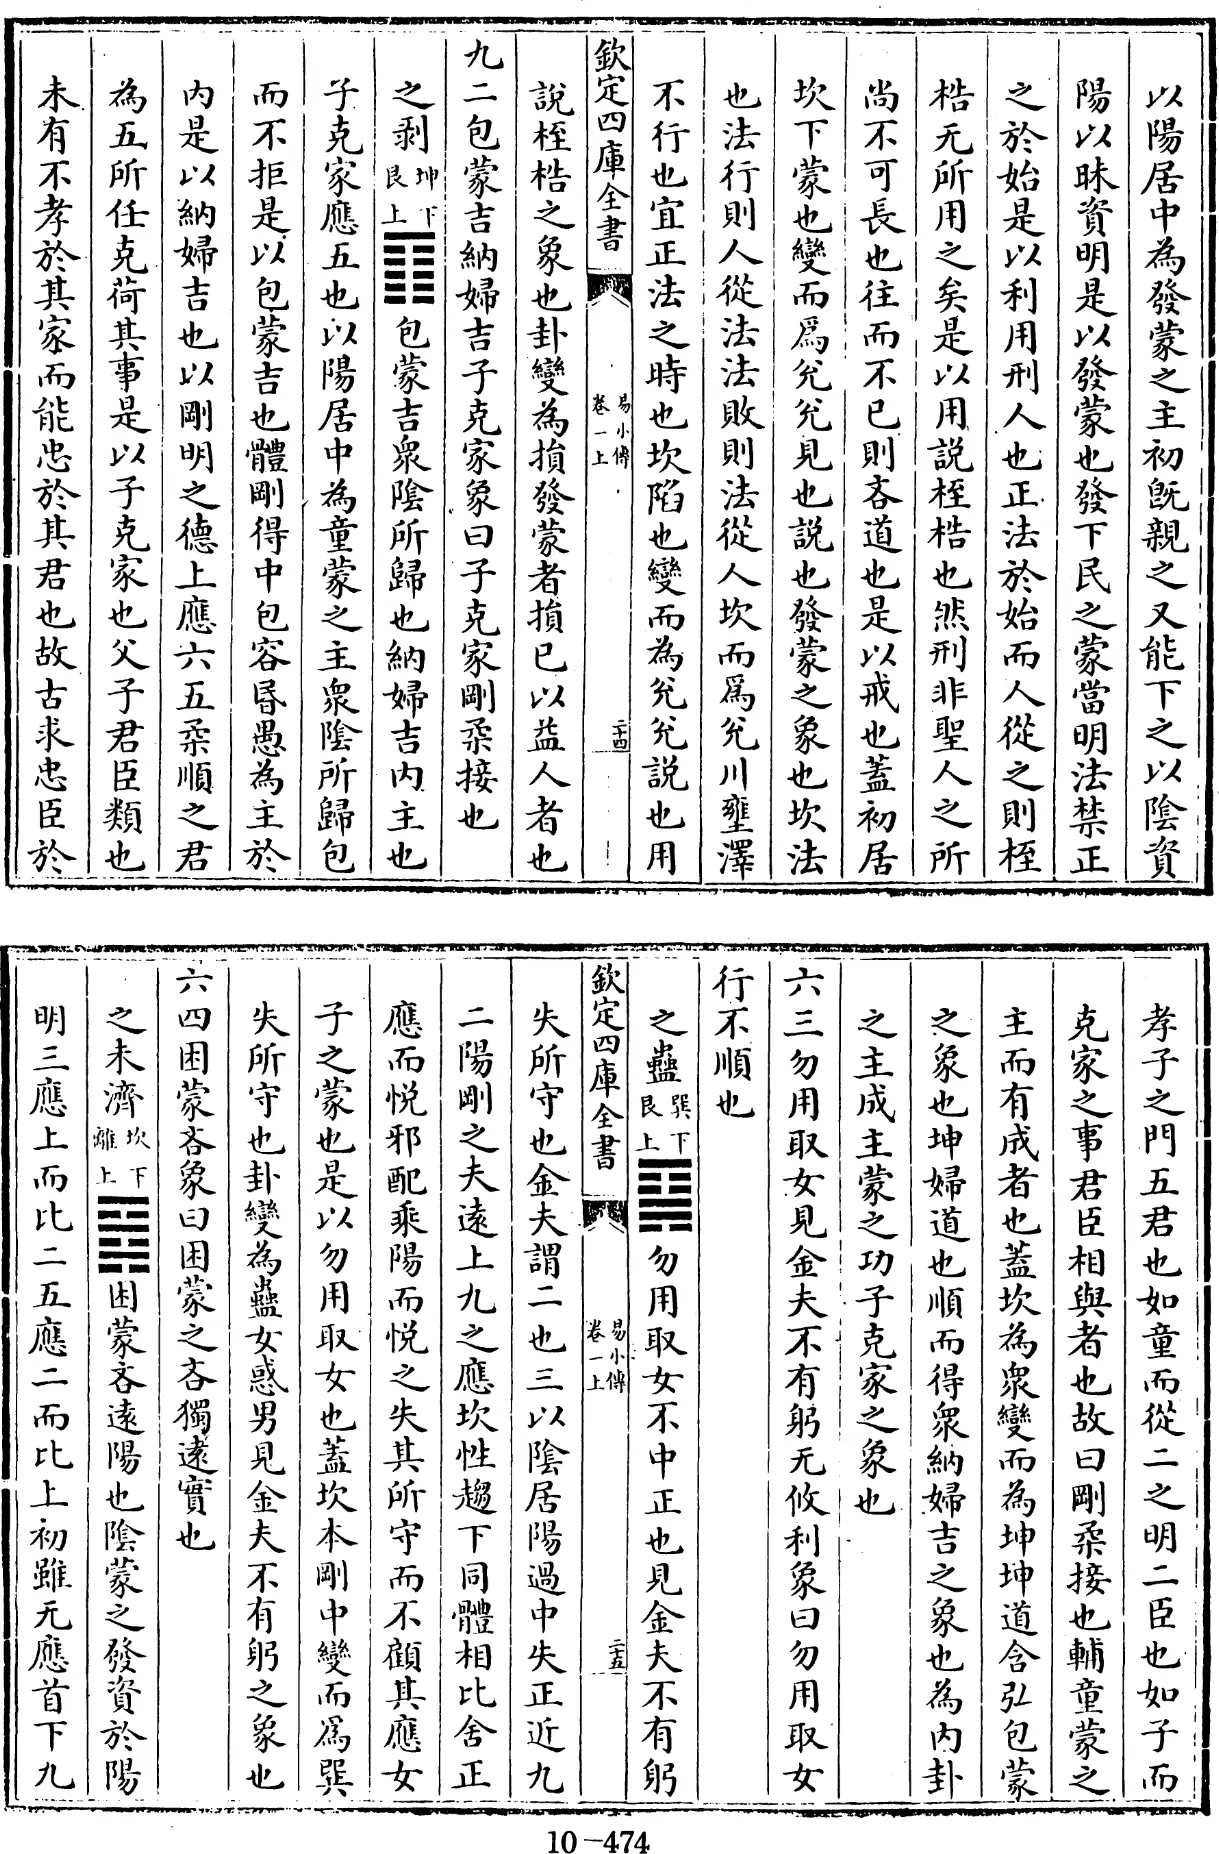 以陽居中為發蒙之主初旣親之又能下之以陰資
陽以昧資明是以發蒙也發下民之蒙當明法禁正
之於始是以利用刑人也正法於始而人從之則桎
梏无所用之矣是以用說桎梏也然刑非聖人之所
尚不可長也往而不已則吝道也是以戒也蓋初居
坎下蒙也變而爲兊兊見也說也發蒙之象也坎法
也法行則人從法法敗則法從人坎而爲兊川壅澤
不行也宜正法之時也坎陷也變而為兊兊說也用
欽定四庫全書
易小傳
卷一上
二十四
說桎梏之象也卦變為損發蒙者損已以益人者也
九二包蒙吉納婦吉子克家象曰子克家剛柔接也
之剥坤下艮上䷖包蒙吉衆陰所歸也納婦吉内主也
子克家應五也以陽居中為童蒙之主衆陰所歸包
而不拒是以包蒙吉也體剛得中包容昬愚為主於
内是以納婦吉也以剛明之德上應六五柔順之君
為五所任克荷其事是以子克家也父子君臣類也
未有不孝於其家而能忠於其君也故古求忠臣於
孝子之門五君也如童而從二之明二臣也如子而
克家之事君臣相與者也故曰剛柔接也輔童蒙之
主而有成者也蓋坎為衆變而為坤坤道含弘包蒙
之象也坤婦道也順而得衆納婦吉之象也為内卦
之主成主蒙之功子克家之象也
六三勿用取女見金夫不有躬无攸利象曰勿用取女
行不順也
之蠱巽下艮上䷑勿用取女不中正也見金夫不有躬
欽定四庫全書
易小傳
卷一上
二十五
失所守也金夫謂二也三以陰居陽過中失正近九
二陽剛之夫遠上九之應坎性趨下同體相比舍正
應而悦邪配乘陽而悦之失其所守而不顧其應女
子之蒙也是以勿用取女也蓋坎本剛中變而爲巽
失所守也卦變為蠱女惑男見金夫不有躬之象也
六四困蒙吝象曰困蒙之吝獨遠實也
之未濟坎下離上䷿困蒙吝遠陽也陰蒙之發資於陽
明三應上而比二五應二而比上初雖无應首下九
10-474